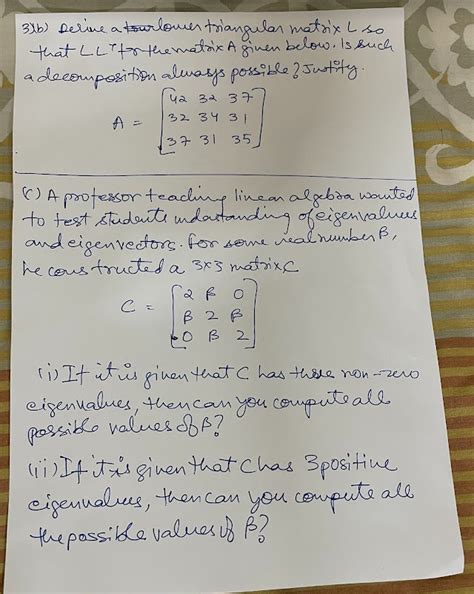 3)b) Define a lower triangular matrix L so
that LLᵀ for the matrix A given below. Is such
a decomposition always possible? Justify.
A = [42 32 37
32 34 31
37 31 35]
(c) A professor teaching linear algebra wanted
to test students undastanding of eigenvalues
and eigenvectors. For some real number β,
he constructed a 3x3 matrix C
C = [2 β 0
β 2 β
0 β 2]
(i) If it is given that C has three non-zero
eigenvalues, then can you compute all
possible values of β?
(ii) If it is given that C has 3 positive
eigenvalues, then can you compute all
the possible values of β?